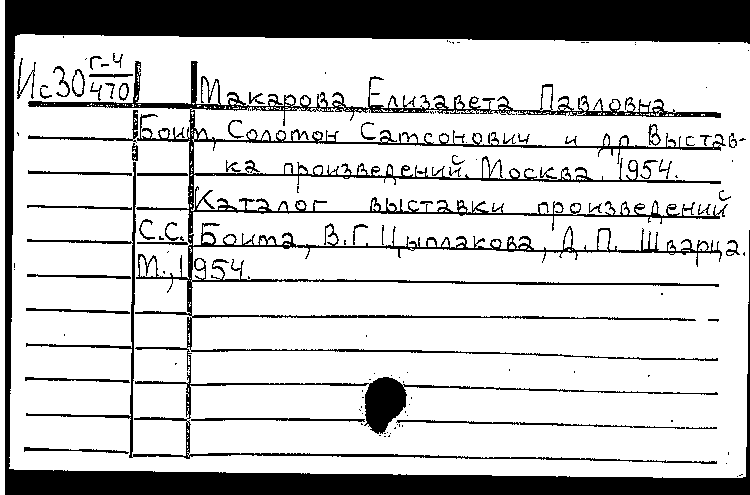 Ис30 Г-4/470
Макарова, Елизавета Павловна.
Боим, Соломон Самсонович и др. Выстав-
ка произведений. Москва. 1954.
Каталог выставки произведений
С.С. Боима, В.Г. Цыплакова, Д.П. Шварца.
М., 1954.